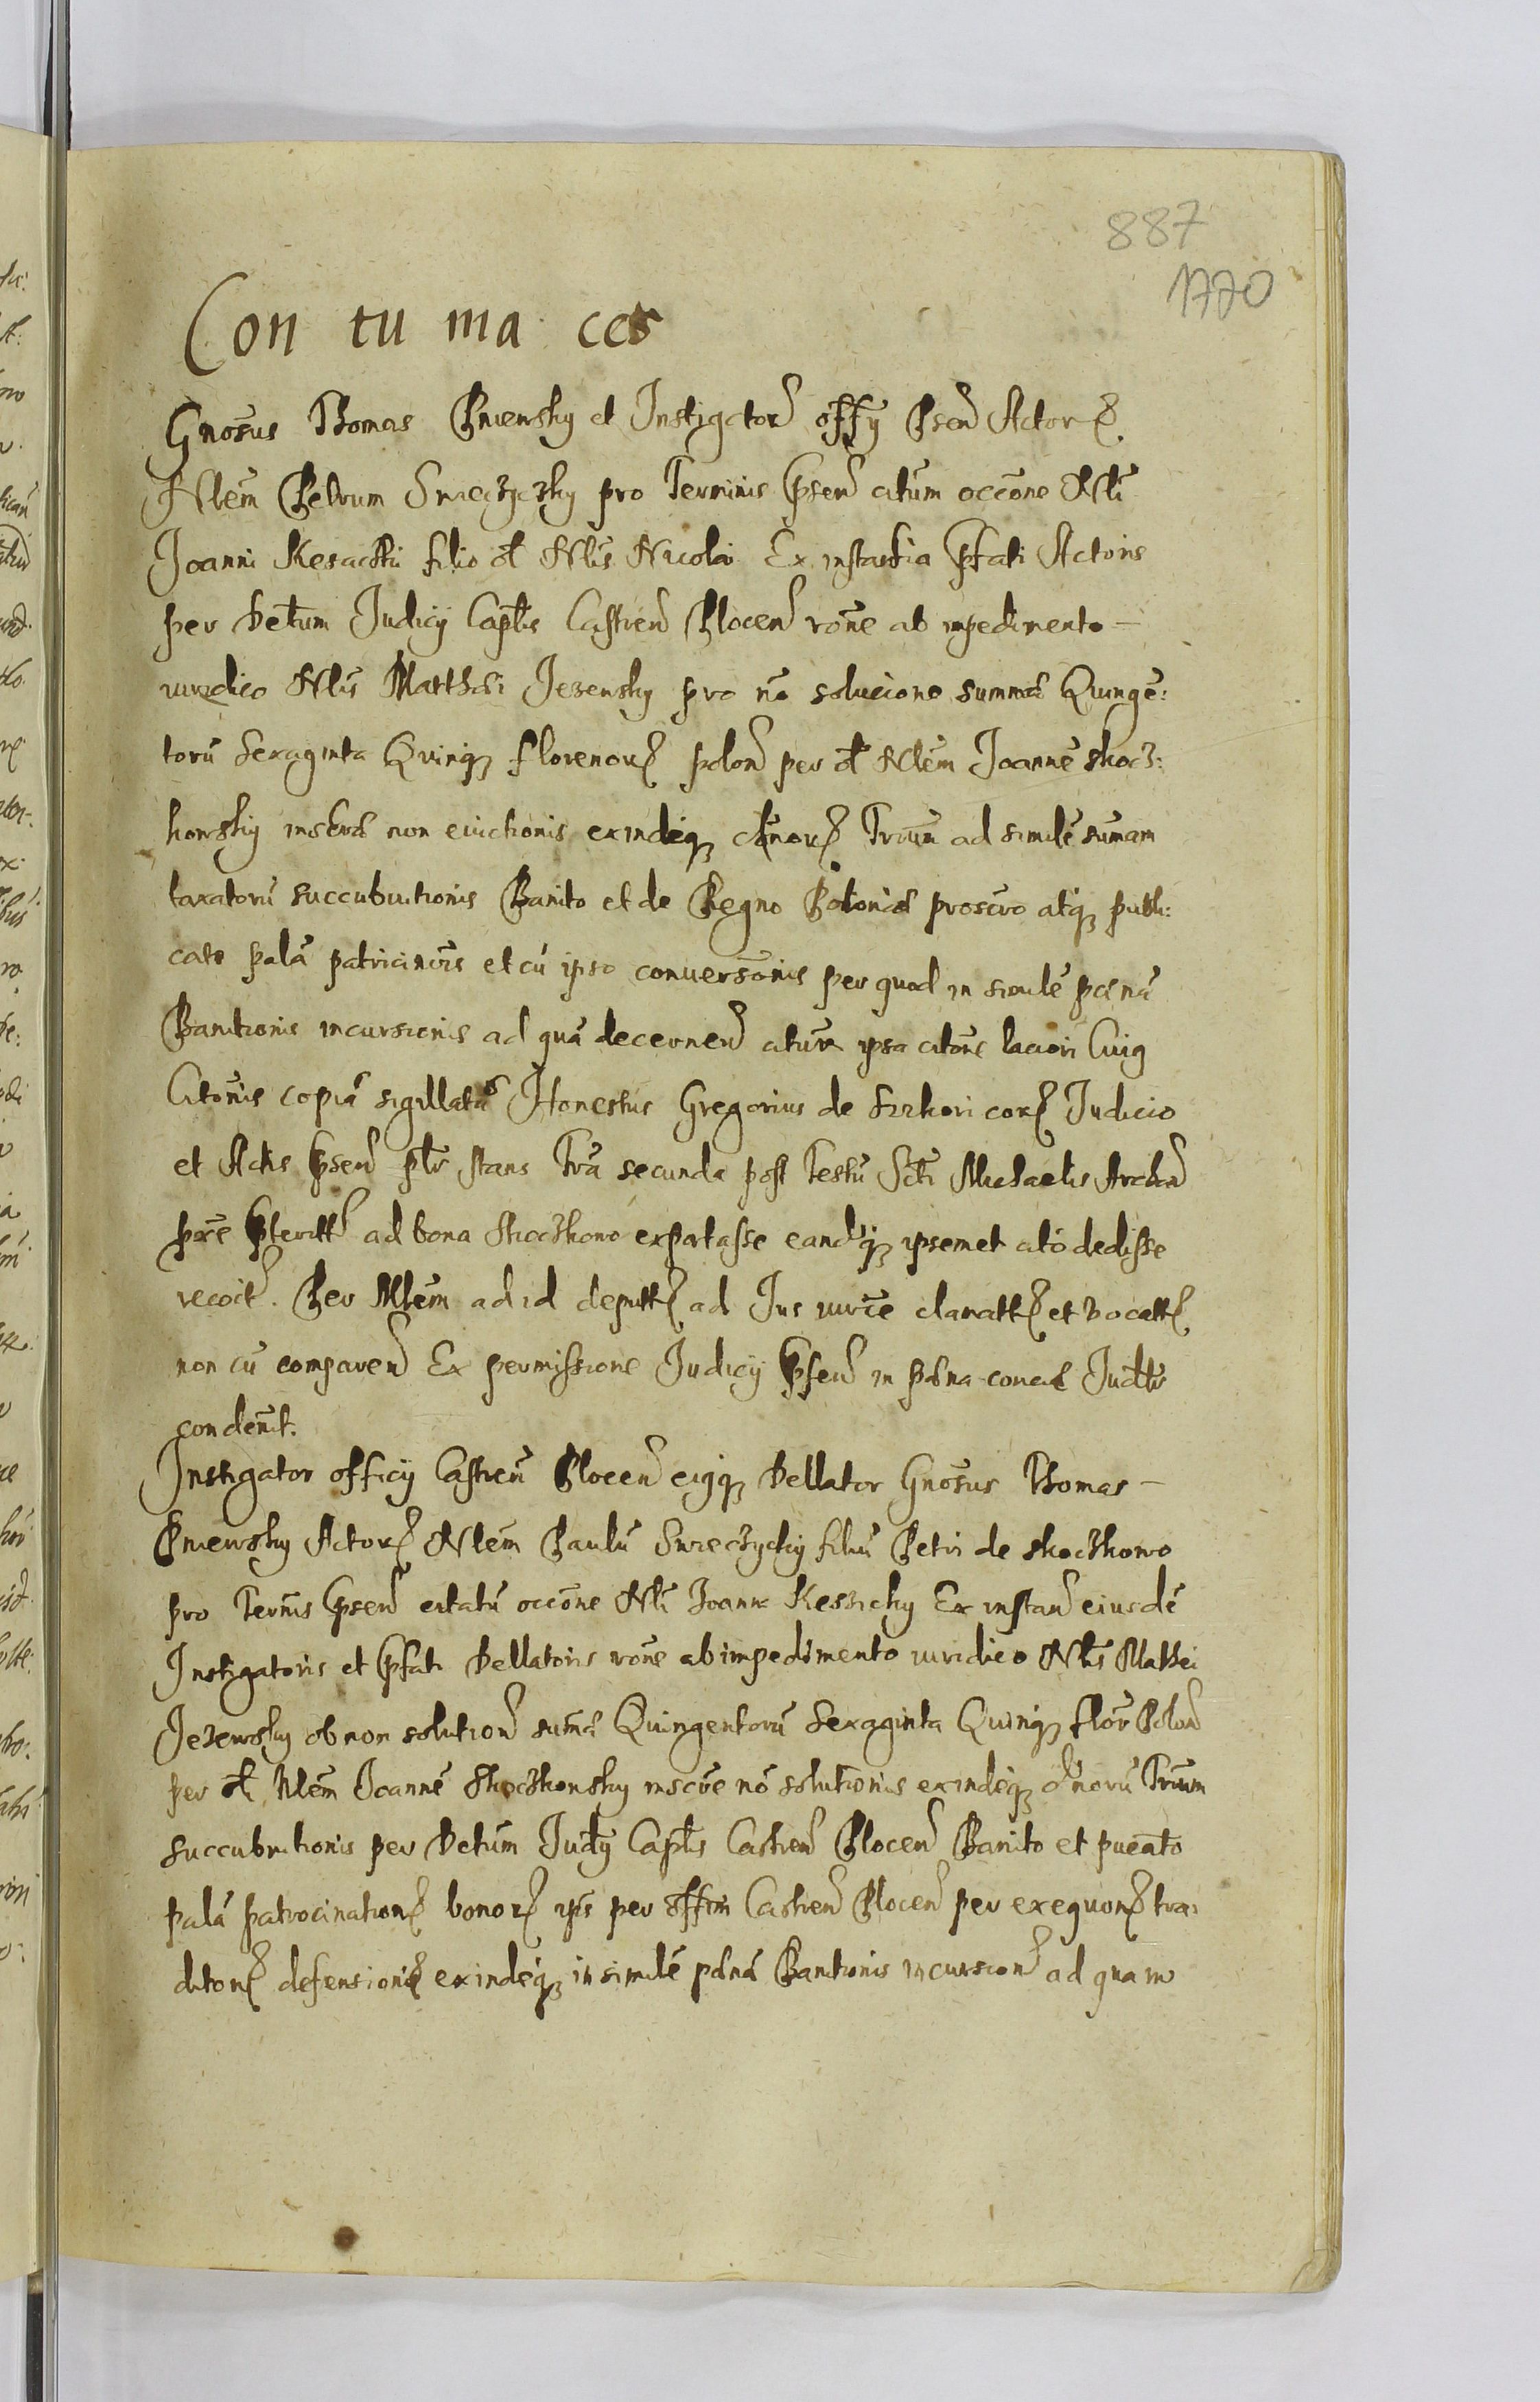 887
1770
Con tu ma ces
Gnosus Thomas Pniewsky et Instigator offy Psen Actores
Nlem Petrum Swieczyczky pro Terminis Psen citum occone Nli
Joanni Kesiczki filio ol Nlis Nicolai Ex instantia Pfati Actoris
per Detum Judicy Caplis Castren Plocen rone ab inpedimento
iuridico Nlis Matthei Jezewsky pro no solucione summæ Quinge:
toru Sexaginta Quinq florenor polon per ol Nlem Joanne skocz:
kowskij inscræ non evictionis exindeq damnor Trium ad simile sumam
taxatoru succubuitionis Banito et de Regno Poloniæ proscro atq publi:
cato pala patricinois et cu ipso conuersonis per quod in simile poena
Banitionis incursionis ad qua decernen citum ipsa citone laciori Cuig
Citonis copia sigillata Honestus Gregorius de Sirkori cor Judicio
et Actis Psen plr stans Fria secunda post Festu Scti Michaelis Archan
pxe Pterit ad bona Skoczkowo exportasse eandeq ipsemet cito dedisse
recoit. Per Mlem ad id deputt ad Jus iurice clamatt et vocatt
non cu comparen Ex permissione Judicy Psen in poena concæ Judlr
condemt.
Instigator officij Castren Plocen eigq Dellator Gnosus Thomas
Pniewsky Actores Nlem Paulu Swieczycky filiu Petri de skoczkowo
pro Termis Psen citatu occone Nli Joanni Kessicky Ex instan eiusde
Instigatoris et Pfati Dellatoris rone ab impedimento iuridico Nlis Mathei
Jezewsky ob non solution sumæ Quingentoru Sexaginta Quinq flor Polon
per ol Nlem Joanne Skoczkowsky inscræ no solutionis exindeq damnoru Trium
succubuitionis per Detum Judy Caplis Castren Plocen Banito et pucato
pala patrocination bonor ipis per offm Castren Plocen per exequon tra:
ditor defensionis exindeq in simile poena Banitionis incursion ad quam